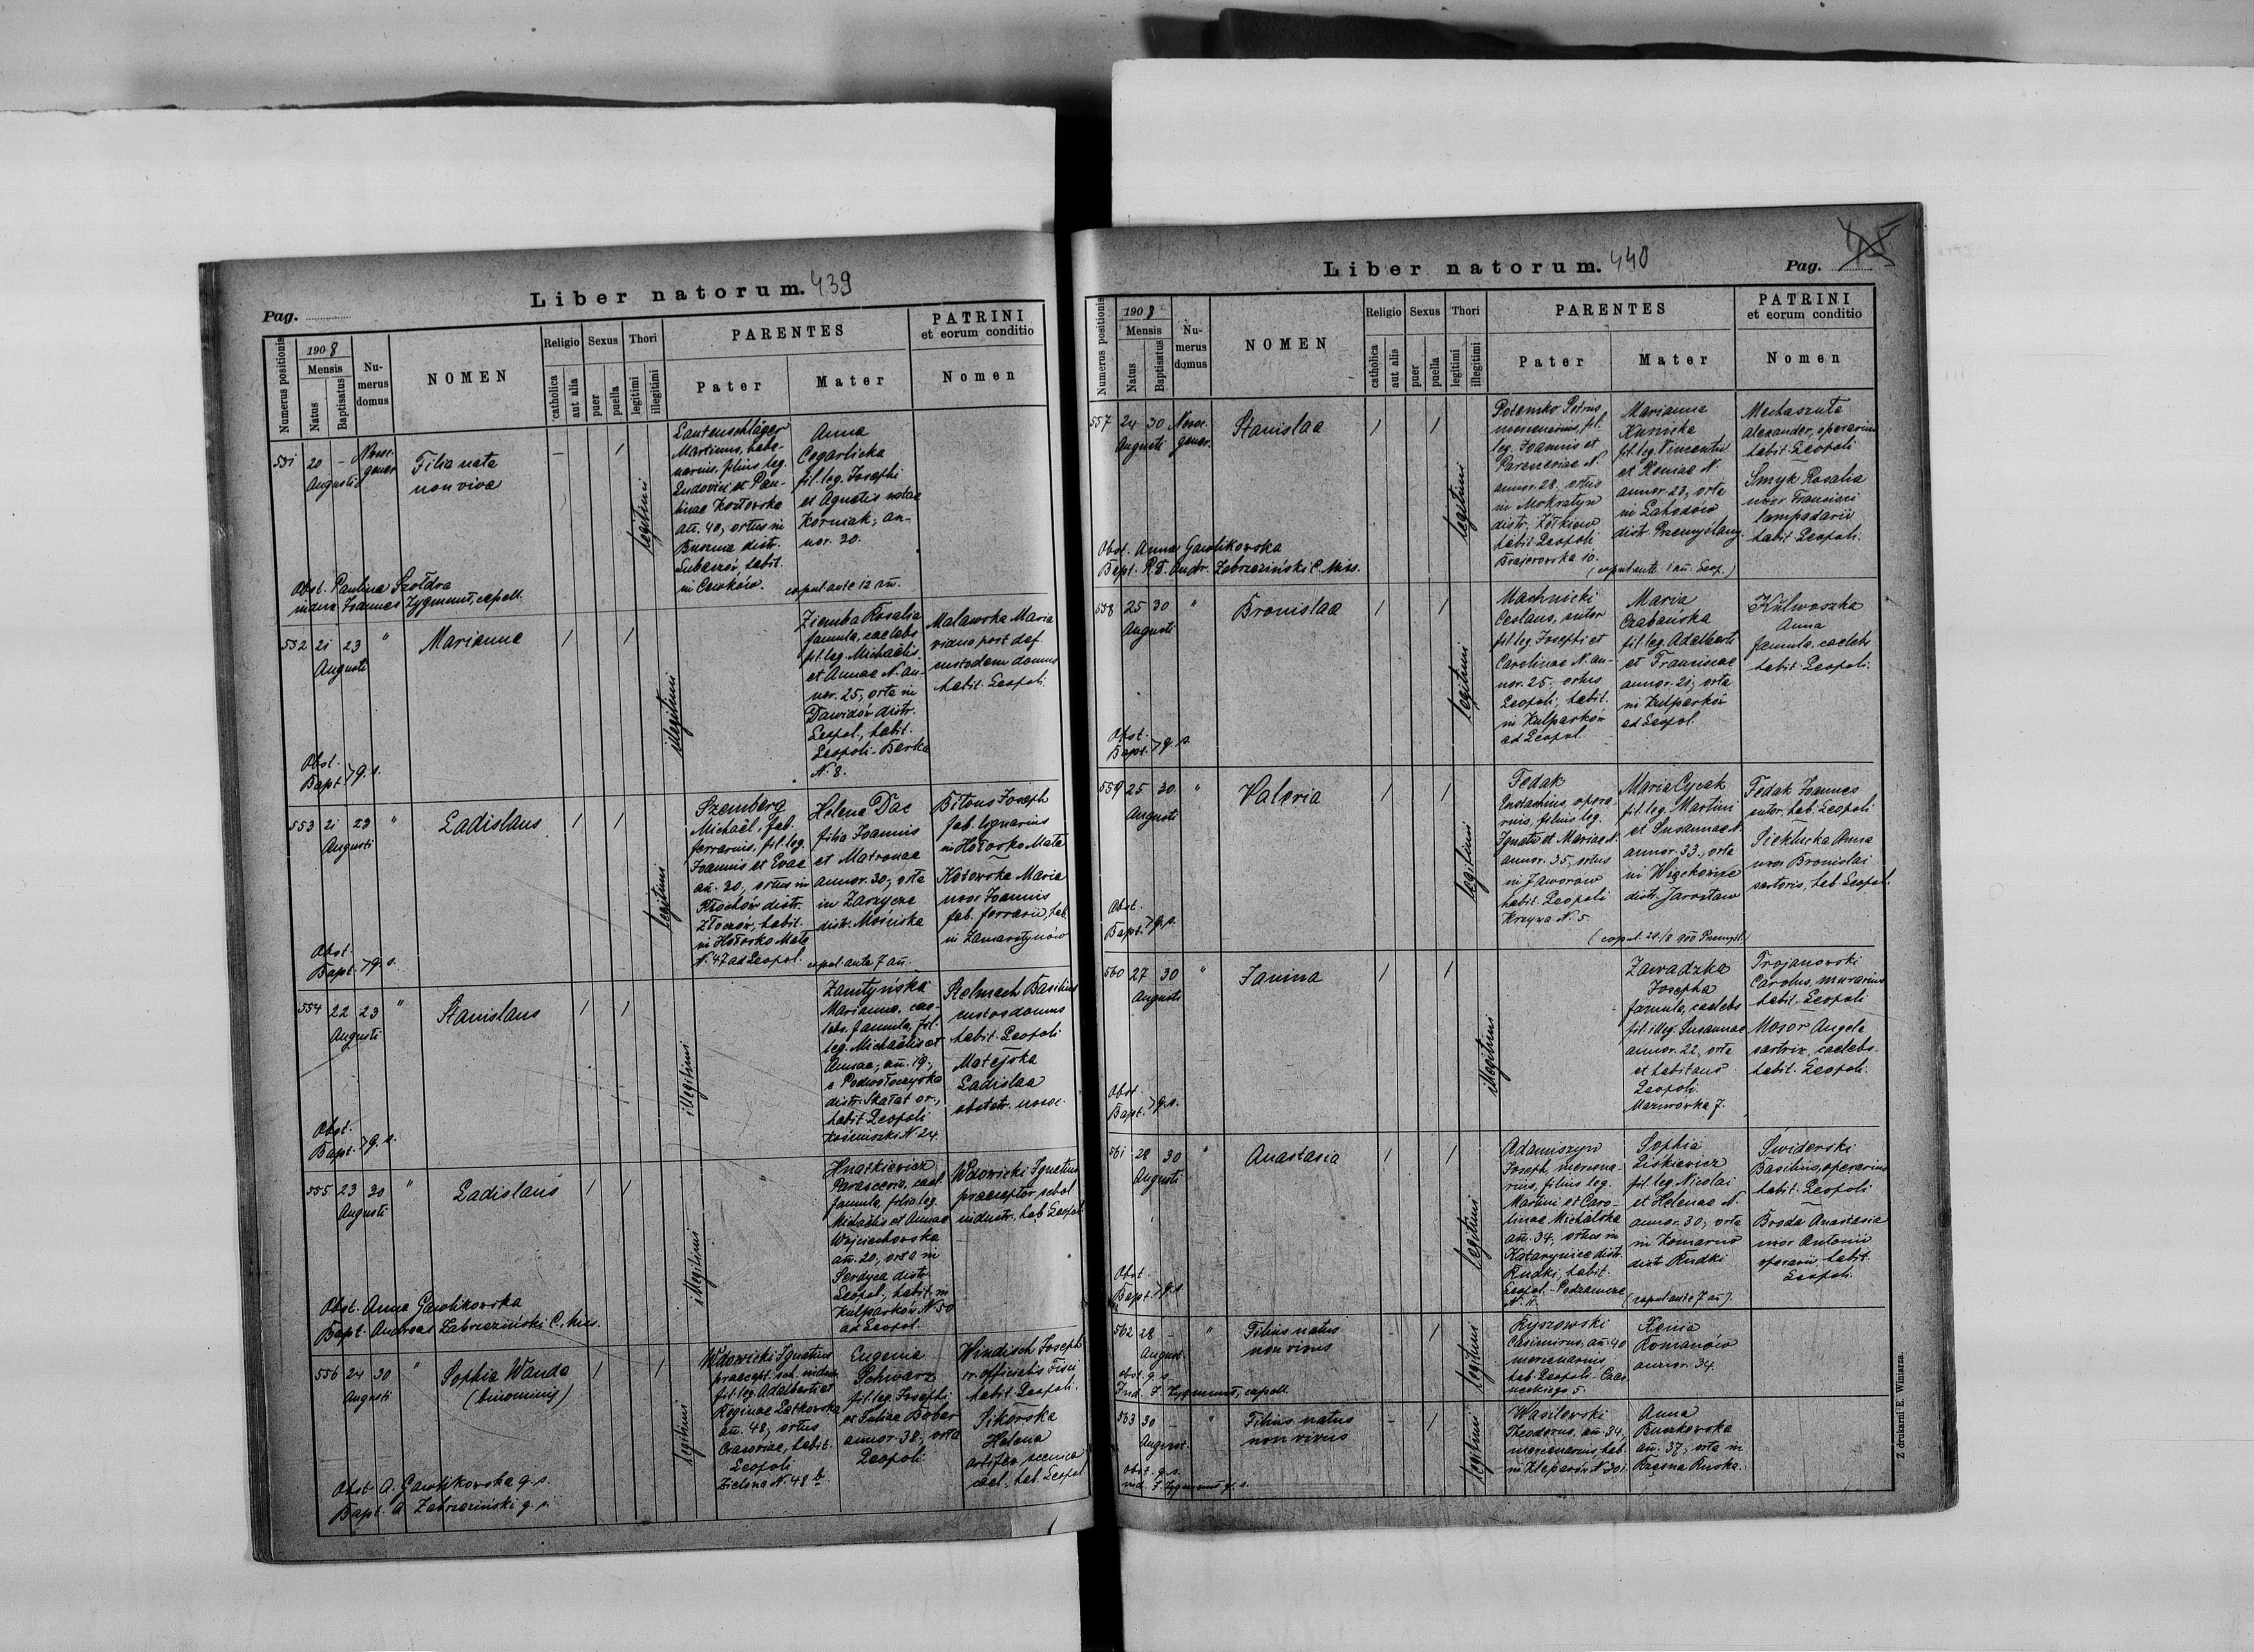 Liber natorum. 439
Pag.
Numerus positionis
1908
Mensis
Natus
Baptisatus
Nu-
merus
domus
NOMEN
Religio
catholica
aut alia
Sexus
puer
puella
Thori
legitimi
illegitimi
PARENTES
Pater
Mater
PATRINI
et eorum conditio
Nomen
551
20
-
Augusti
Nosoc.
gener.
Filia nata
non viva
legitimi
Lautenschläger
Martinus, tabe-
narius, filius leg.
Ludovici et Pau-
linae Kozłovska
añ. 40, ortus in
distr.
Lubaczów, habit.
in
Anna
Cegarlicka
fil. leg. Josephi
et Agnetis natae
Korniak, an-
nor. 30.
copul. ante 12 añ.
Obst. Paulina Szołdra
indux. Joannes Zygmunt, capell.
552
21 23 "
Augusti
Marianna
illegitimi
Ziemba Rosalia
famula, caelebs
fil. leg. Michaëlis
et Annae N. an-
nor. 25, orta in
Dawidów distr.
Leopol., habit.
Leopoli - Berka
N. 8.
Malawska Maria
vidua post def.
custodem domus
habit. Leopoli
Obst.
Bapt. > q. s.
553
21 23 "
Augusti
Ladislaus
legitimi
Szemberg
Michaël, fab.
ferrarius, fil. leg.
Joannis et Evae
añ. 30, ortus in
distr.
Złoczów, habit.
in Hołosko Małe
N. 47 ad Leopol.
Helena Dac
filia Joannis
et Matronae
annor. 30, orta
in Zarzycze
distr. Mościska
copul. ante 7 añ.
Bitous Joseph
fab. lignarius
in Hołosko Małe
Kotowska Maria
uxor Joannis
fab. ferrarii, hab.
in Zamarstynów
Obst.
Bapt. > q. s.
554
22 23 "
Augusti
Stanislaus
illegitimi
Zamtyńska
Marianna, cae-
lebs, famula, fil.
leg. Michaëlis et
Annae, añ. 19,
e Podwołoczyska
distr. Skałat or.,
habit. Leopoli
Kościuszki N 24.
Stelmach Basilius
custos domus
habit. Leopoli
Matejska
Ladislaa
obstetr. nosoc.
Obst.
Bapt. > q. s.
555
23 30 "
Augusti
Ladislaus
illegitimi
"
Hnatkiewicz
Parascevia, cael.
famula, filia leg.
Michaëlis et Annae
Wojciechowska
añ. 20, orta in
Serdyca distr.
Leopol., habit. in
Kulparków N 50
ad Leopol.
Wdowicki Ignatius
praeceptor schol.
industr., hab. Leopol.
Obst. Anna Gawlikowska
Bapt. Andreas Zabrzeziński C. Miss.
556
24 30 "
Augusti
Sophia Wanda
(binominis)
legitimi
Wdowicki Ignatius
praecept. sch. industr.
fil. leg. Adalberti et
Reginae Latkowska
añ. 48, ortus
Cracoviae, habit.
Leopoli
Zielona N. 48 b.
Eugenia
Schwarz
fil. leg. Josephi
et Juliae Bober
annor. 38, orta
Leopoli.
Windisch Joseph
officialis Fisci
habit. Leopoli.
Sikorska
Helena
artifex scenica
cael. hab. Leopol.
Obst. A. Gawlikowska q. s.
Bapt. A. Zabrzeziński q. s.
Liber natorum. 440
Pag.
Numerus positionis
1908
Mensis
Natus
Baptisatus
Nu-
merus
domus
NOMEN
Religio
catholica
aut alis
Sexus
puer
puella
Thori
legitimi
illegitimi
PARENTES
Pater
Mater
PATRINI
et eorum conditio
Nomen
557
24 30
Augusti
Nosoc.
gener.
Stanislaa
legitimi
Potemko Petrus
mercenarius, fil.
leg. Joannis et
Parasceviae N.
annor. 28, ortus
in Mokratyn
distr. Żółkiew
habit. Leopoli
Brajerowska 10.
Marianna
Kunicka
fil. leg. Vincentii
et Xeniae N.
annor. 23, orta
in Lahodów
distr. Przemyślany.
(copul. ante 1 añ. Leop.)
Mechaszuta
Alexander, operarius
habit. Leopoli
Smyk Rosalia
uxor Francisci
lampadarii
habit. Leopoli.
Obst. Anna Gawlikowska
Bapt. R. D. Andr. Zabrzeziński C. Miss.
558
25 30 "
Augusti
Bronislaa
legitimi
Machnicki
Ceslaus, sutor
fil. leg. Josephi et
Carolinae N. an-
nor. 25, ortus
Leopoli, habit.
in Kulparków
ad Leopol.
Maria
Czabańska
fil. leg. Adalberti
et Franciscae
annor. 21, orta
in Kulparków
ad Leopol.
Kulwoszka
Anna
famula, caelebs
habit. Leopoli.
Obst.
Bapt. > q. s.
559
25 30. "
Augusti
Valeria
legitimi
Fedak
Eustachius, opera-
rius, filius leg.
Ignatii et Mariae N.
annor. 35, ortus
in Jaworów
habit. Leopoli
Krzywa N. 5.
Maria Cycak
fil. leg. Martini
et Susannae N.
annor. 33, orta
in Więckowice
distr. Jarosław
(copul. 29/8 900 Przemyśl.)
Fedak Joannes
sutor, hab. Leopoli
Sieklucka Anna
uxor Bronislai
sartoris, hab. Leopoli.
Obst.
Bapt. > q. s.
560
27 30 "
Augusti
Janina
illegitimi
Zawadzka
Josepha
famula, caelebs
fil. illeg. Susannae
annor. 22, orta
et habitans
Leopoli.
Mazurówka 7.
Trojanowski
Carolus, murarius
habit. Leopoli
Mosor Angela
sartrix, caelebs.
habit. Leopoli.
Obst.
Bapt. > q. s.
561
28 30 "
Augusti
Anastasia
legitimi
Adamiszyn
Joseph, mercena-
rius, filius leg.
Martini et Caro-
linae Michalska
añ. 34, ortus in
Katarynice distr.
Rudki, habit.
Leopol. - Podzamcze
N. 11.
Sophia
Liskiewicz
fil. leg. Nicolai
et Helenae N.
annor. 30, orta
in Komarno
distr. Rudki
(copul. ante 7 añ).
Świderski
Basilius, operarius
habit. Leopoli
Broda Anastasia
uxor Antonii
operarii, habit.
Leopoli.
Obst.
Bapt. > q. s.
562
28 - "
August.
Filius natus
non vivus
legitimi
Ryszowski
Casimirus, añ. 40
mercenarius,
hab. Leopoli - Czar-
neckiego 5.
Xenia
Romanów
annor. 34.
obst. q. s.
Ind. J. Zygmunt, capell.
563
30 - "
August.
Filius natus
non vivus
legitimi
Wasilewski
Theodorus, añ. 34,
mercenarius, hab.
in Kleparów N 301.
Anna
Buczkowska
añ. 37, orta in
Ruska.
obst. q. s.
ind. J. Zygmunt q. s.
Z drukarni E. Winiarza.